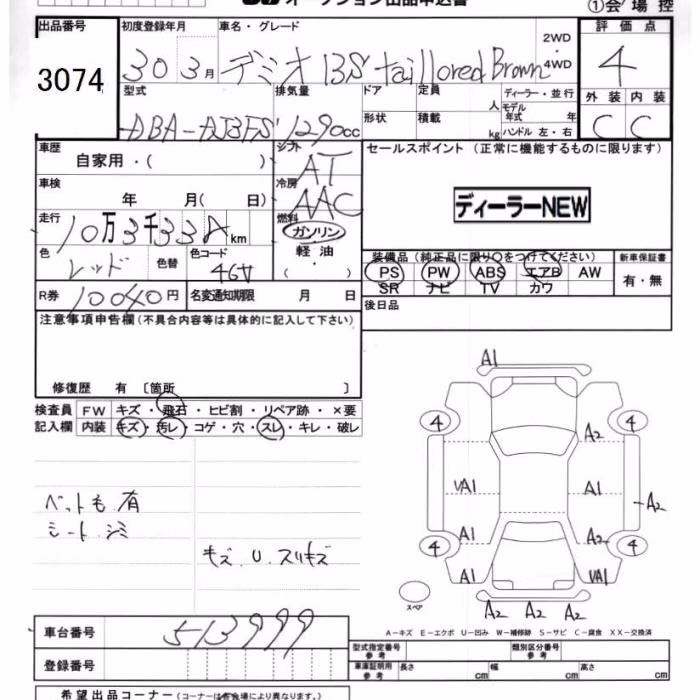 オークション出品申込書
①会場控
出品番号 初度登録年月 車名・グレード 2WD・4WD 評価点
3074 30 3月 デミオ 13S taillored Brown 4
型式 排気量 ドア 定員 人 ディーラー・並行 外装 内装
DBA-DJ3FS 1290cc 形状 積載 kg モデル年式 年 ハンドル 左・右 C C
車歴 自家用・( ) シフト AT セールスポイント (正常に機能するものに限ります)
車検 年 月( 日) 冷房 AAC ディーラーNEW
走行 10万3千33 km 燃料 ガソリン 軽油 ・( )
色 レッド 色替 色コード 46V 装備品 (純正品に限り○をつけてください) 新車保証書
PS PW ABS エアB AW 有・無
SR ナビ TV カワ
R券 10040円 名変通知期限 月 日 後日品
注意事項申告欄 (不具合内容等は具体的に記入して下さい)
修復歴 有 〔箇所 〕
検査員 FW キズ・飛石・ヒビ割・リペア跡・×要
記入欄 内装 キズ・汚レ・コゲ・穴・スレ・キレ・破レ
A1
4 4
A2
UA1 A1 A2
A1 A2
4 4
A1 UA1
A2 A2 A2
スペア
ペットも 有
シート シミ
キズ. U. スリキズ
A-キズ E-エクボ U-凹み W-補修跡 S-サビ C-腐食 XX-交換済
車台番号 513999
登録番号
型式指定番号 参考 類別区分番号 参考
車庫証明用 参考 長さ cm 幅 cm 高さ cm
希望出品コーナー (コーナーは各会場により異なります。)